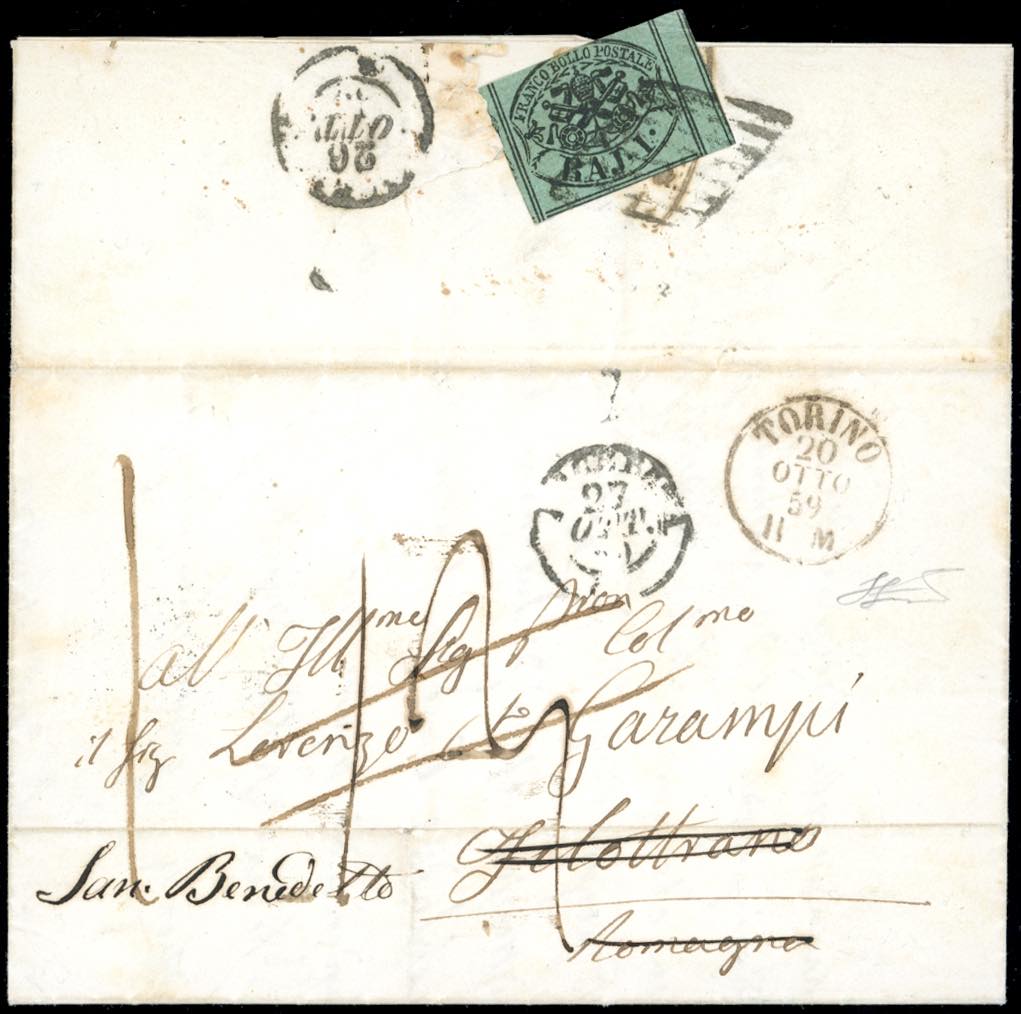 FRANCO BOLLO POSTALE
BAJ. 1.
OTTO
26
TORINO
20
OTTO
59
11 M
27
OTT.
all' Ill^mo Sig Pron Col^mo
il Sig Lorenzo C^te Garampi
Filottrano
San Benedetto
Romagna